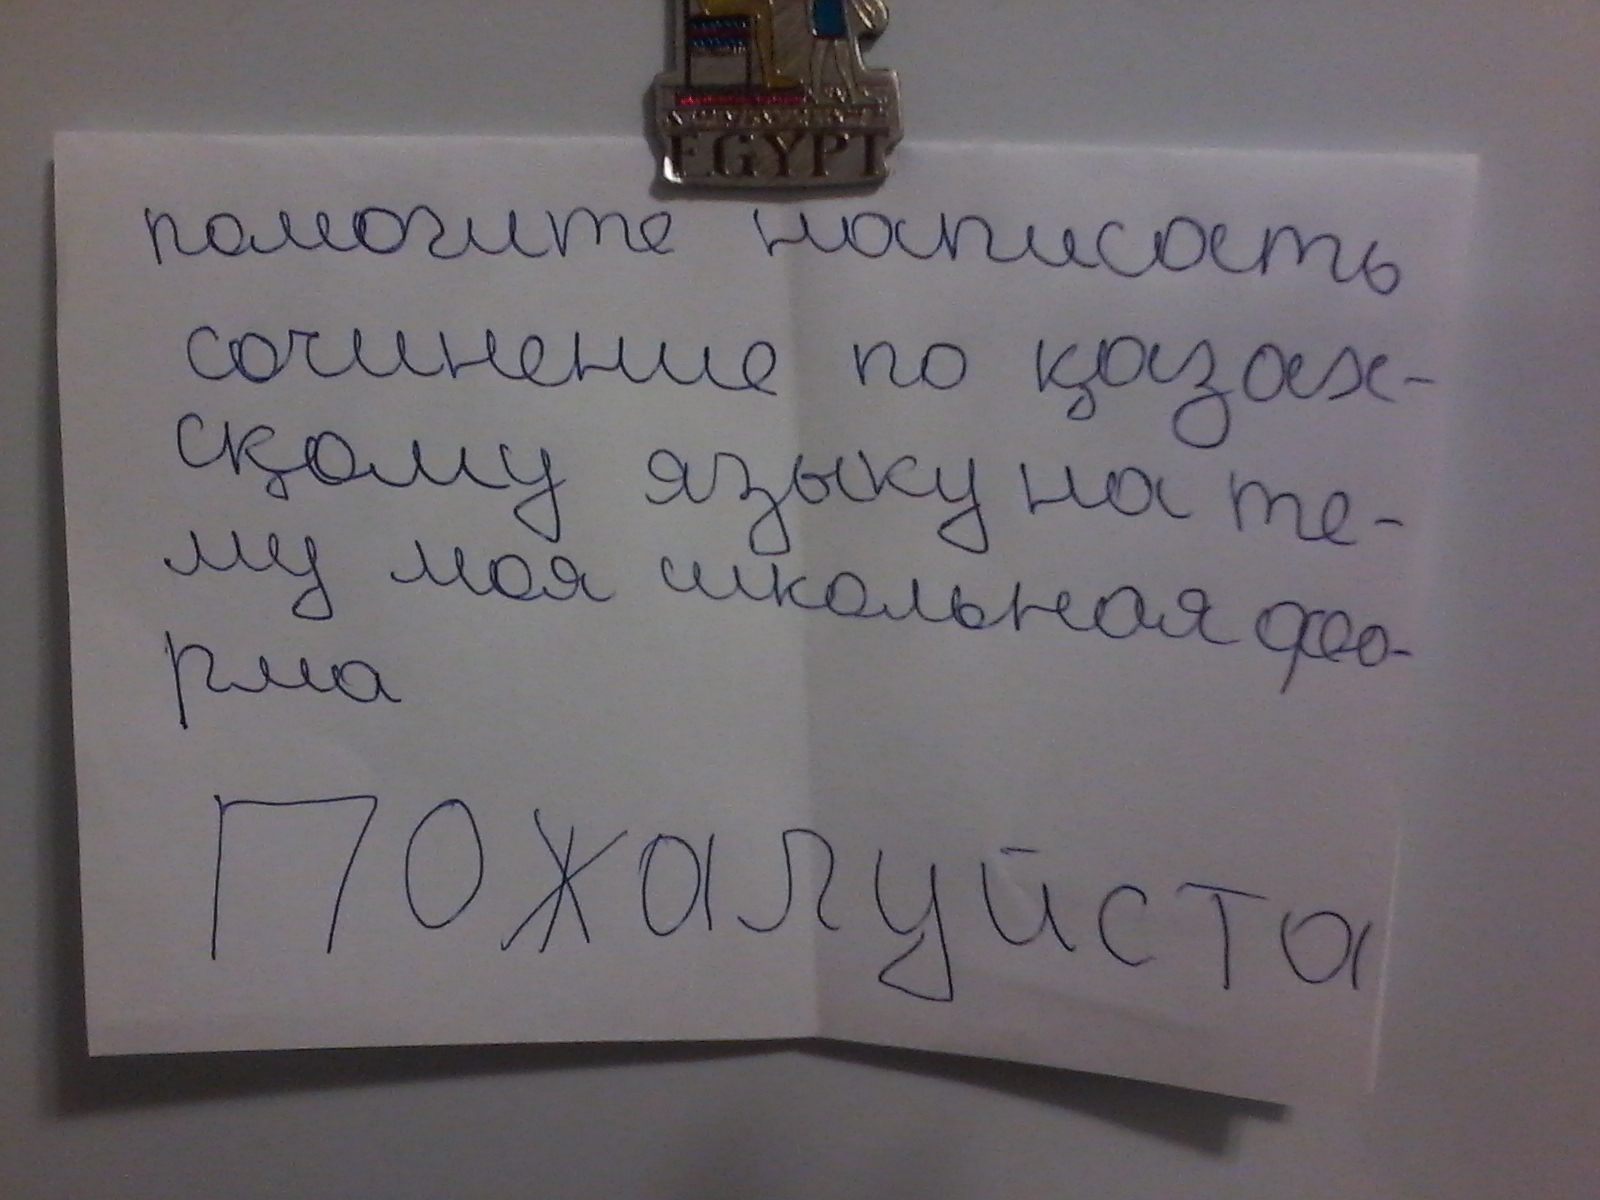 EGYPT
помогите написать
сочинение по қазах-
сқому языку на те-
му моя школьная фо-
рма
Пожалуйста